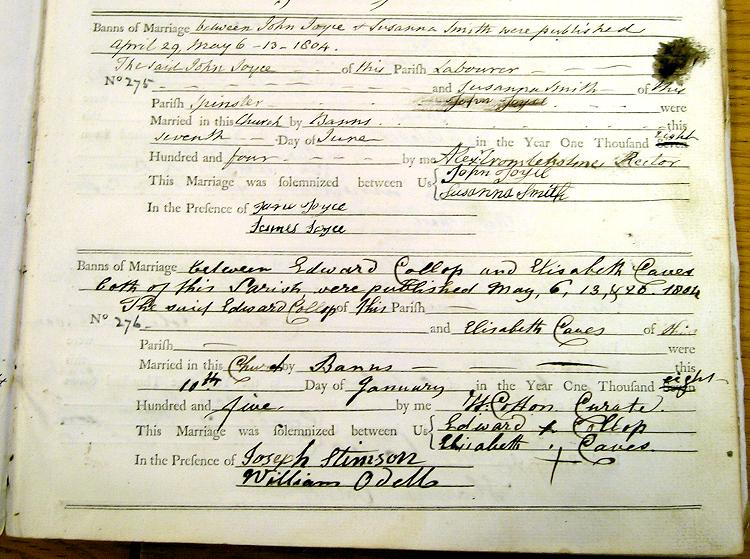 Banns of Marriage between John Joyce & Susanna Smith were published
April 29, May 6 - 13 - 1804.
The said John Joyce of this Parish Labourer
No 275 and Susanna Smith of this
Parish Spinster John Joyce were
Married in this Church by Banns this
seventh Day of June in the Year One Thousand Seven eight
Hundred and four by me Alex Crombleholme Rector
This Marriage was solemnized between Us John Joyce
Susanna Smith
In the Presence of Jane Joyce
James Joyce
Banns of Marriage between Edward Collop and Elisabeth Caves
both of this Parish were published May, 6, 13, & 20. 1804
The said Edward Collop of this Parish
No 276 and Elisabeth Caves of this
Parish were
Married in this Church by Banns this
10th Day of January in the Year One Thousand Seven eight
Hundred and five by me W. Cotton Curate.
This Marriage was solemnized between Us Edward x Collop
Elisabeth Caves
In the Presence of Joseph Stimson
William Odell